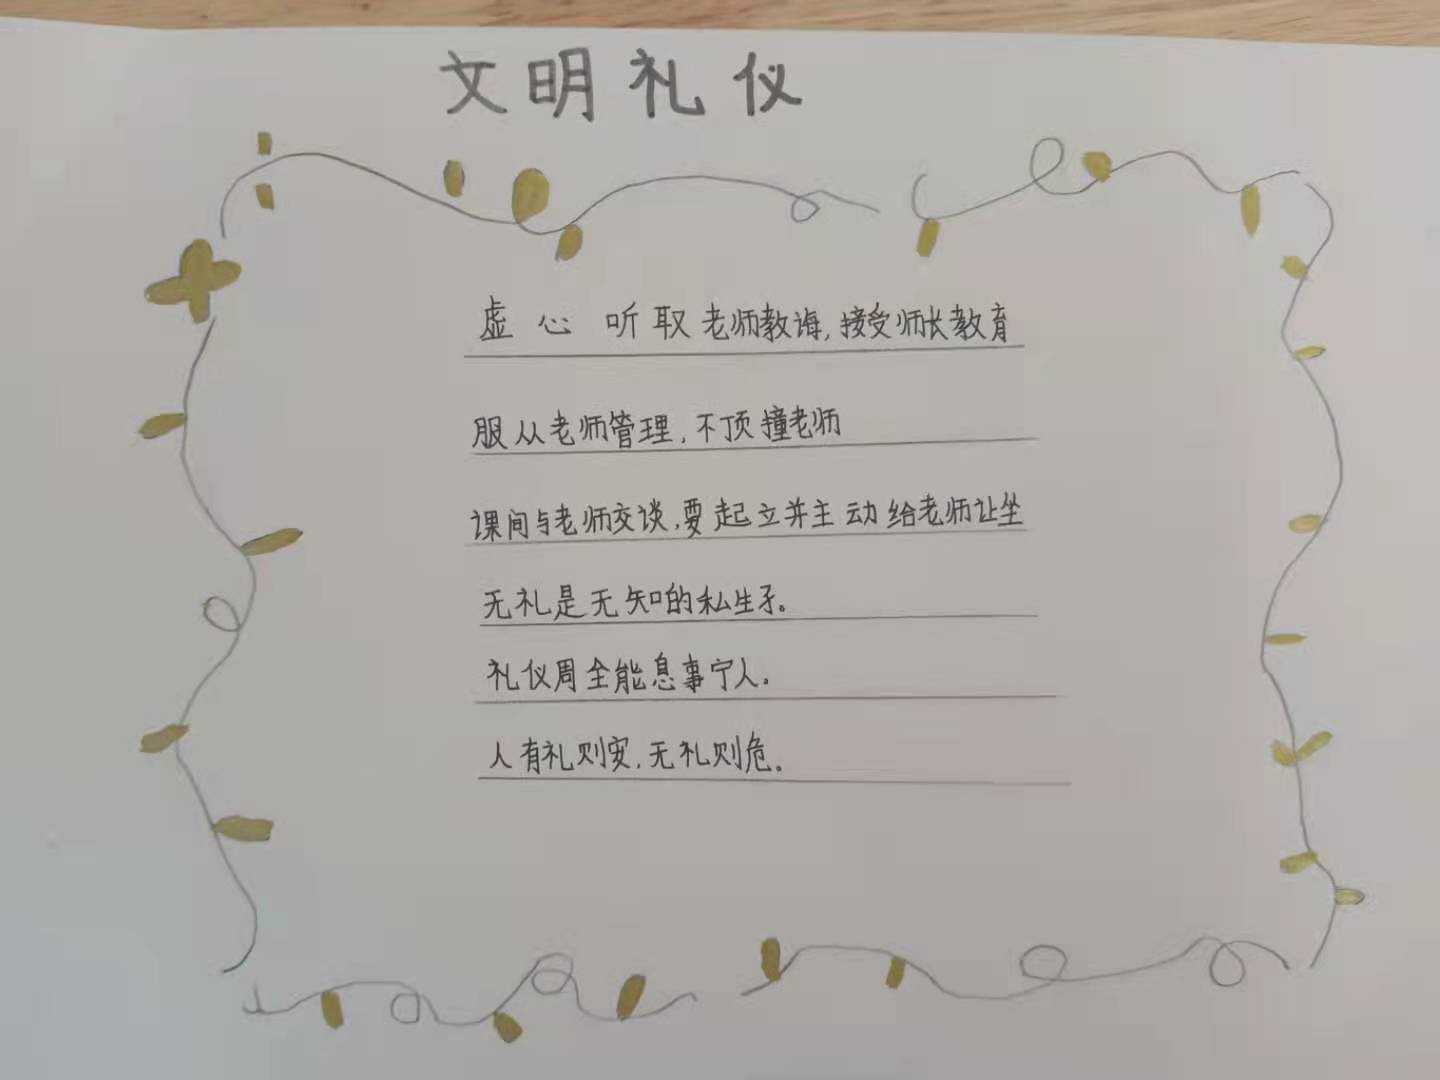 文明礼仪
虚心听取老师教诲,接受师长教育
服从老师管理,不顶撞老师
课间与老师交谈,要起立并主动给老师让坐
无礼是无知的私生子。
礼仪周全能息事宁人。
人有礼则安,无礼则危。